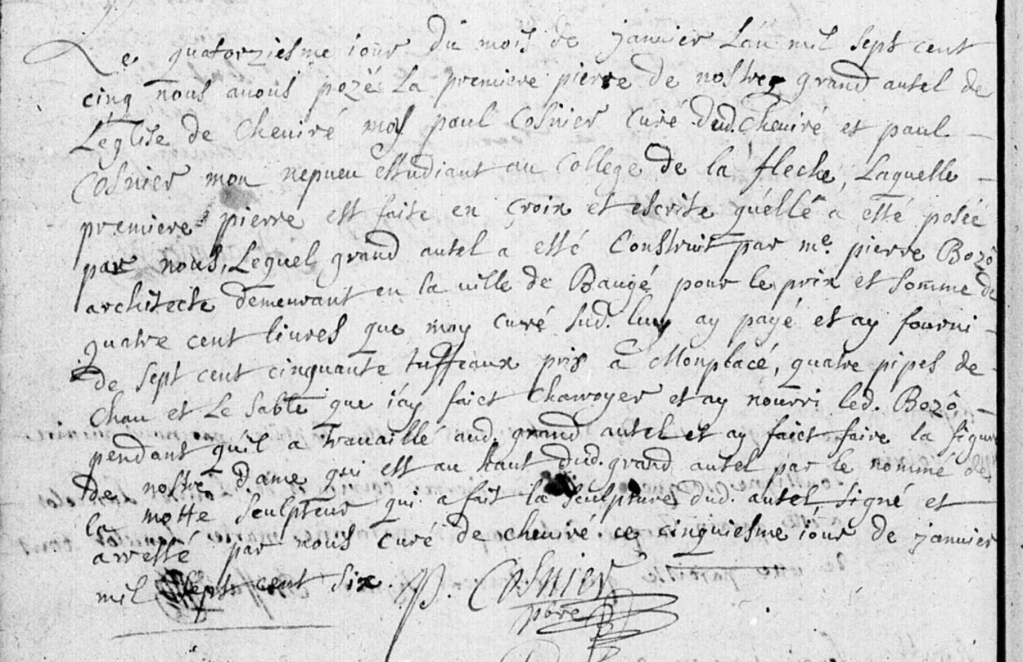 Le quatorziesme iour du mois de janvier L'an mil sept cent
cinq nous avons pozé La premiere pierre de nostre grand autel de
L'église de Cheviré moy paul Cosnier Curé dud. Cheviré et paul
Cosnier mon nepueu estudiant au College de la fleche, Laquelle
premiere pierre est faite en croix et escrite qu'elle a esté posée
par nous, Lequel grand autel a esté Construit par me. pierre Bozô
architecte demeurant en la ville de Baugé pour le prix et somme de
quatre cent livres que moy curé sud. luy ay payé et ay fourni
de sept cent cinquante tuffeaux pris a Monplacé, quatre pipes de
Chau et Le Sable que i'ay faict Charroyer et ay nourri led. Bozô
pendant qu'il a travaillé aud. grand autel et ay faict faire la figure
de nostre Dame qui est au haut dud. grand autel par le nommé de
la motte sculpteur qui a fait la sculpture dud. autel signé et
arresté par nous curé de cheviré ce cinquiesme iour de janvier
mil sept cent six. P. Cosnier
pbre